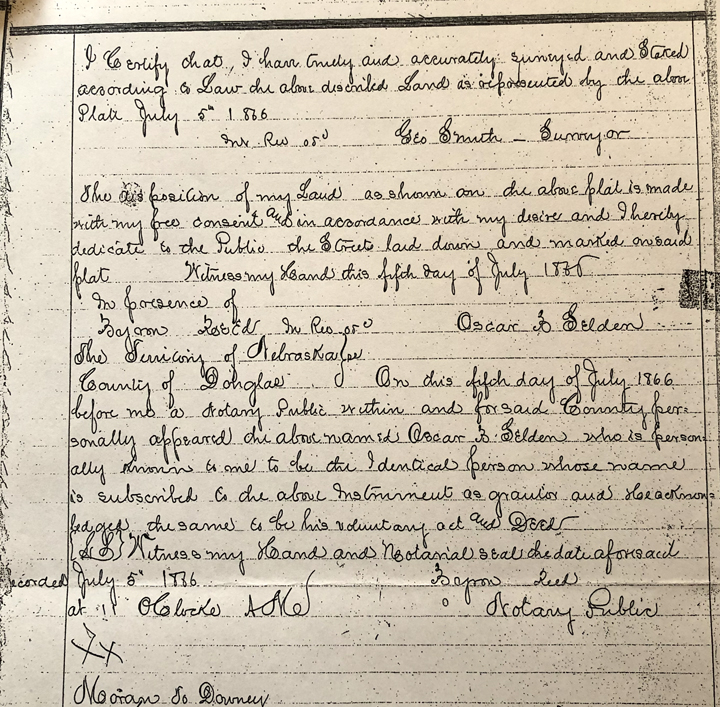 I Certify that, I have truely and accurately surveyed and Staked
according to Law the above discribed Land as represented by the above
Plat July 5th 1866
Int Rev 05c Geo Smith - Surveyor
The disposition of my Land as shown on the above plat is made
with my free consent and in accordance with my desire and I hereby
dedicate to the Public the Streets laid down and marked on said
plat Witness my Hand this fifth day of July 1866
In presence of
Byron Reed Int Rev 05c Oscar B Selden
The Territory of Nebraska
County of Douglas On this fifth day of July 1866
before me a Notary Public within and forsaid County per-
sonally appeared the above named Oscar B. Selden who is person-
ally known to me to be the Identical person whose name
is subscribed to the above Instrument as grantor and He acknow-
ledged the same to be his voluntary act and Deed
{LS} Witness my Hand and Notarial seal the date aforesaid
ecorded July 5th 1866 Byron Reed
at 11 OClocke AM Notary Public
XX
Moran To Downey